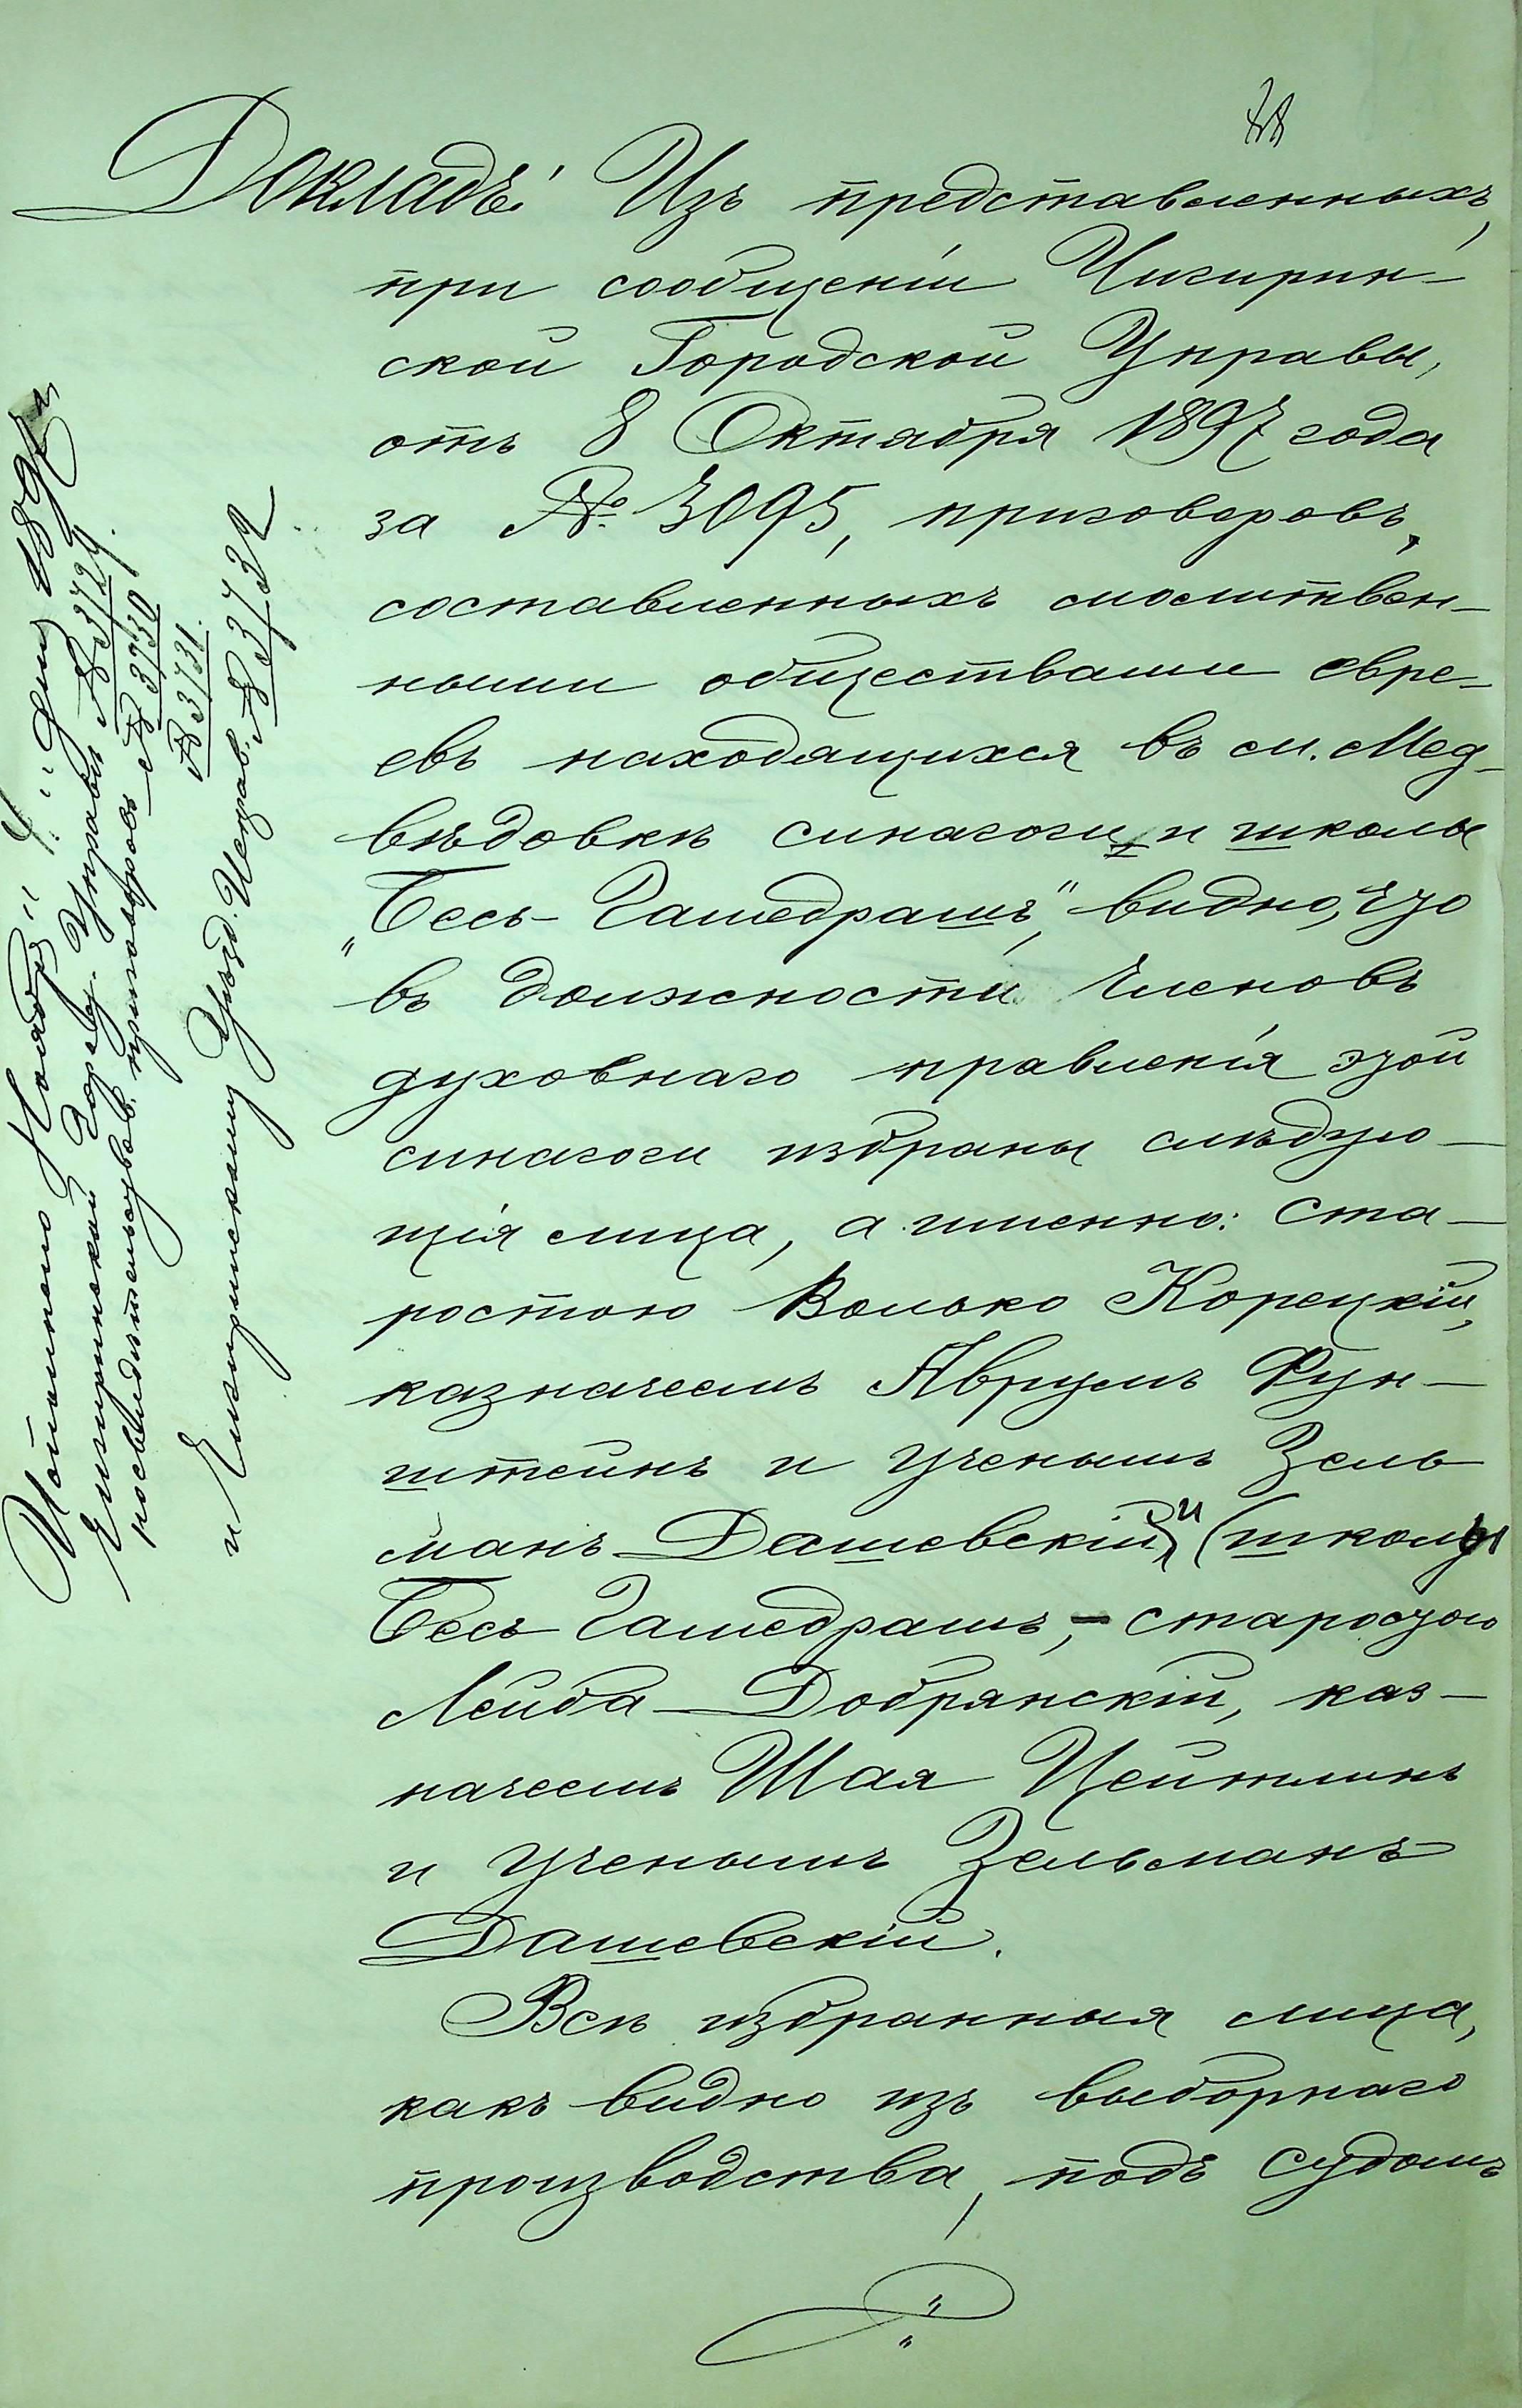 Докладъ: Изъ представленныхъ,
при сообщеніи Чигирин-
ской Городской Управы,
отъ 8 Октября 1897 года
за № 3095, приговоровъ,
составленныхъ молитвен-
ными обществами евре-
евъ находящихся въ м. Мед-
вѣдовкѣ синагоги и школы
„Бесъ-Гамедрашъ", видно, что
въ должности членовъ
духовнаго правленія этой
синагоги избраны слѣдую-
щія лица, а именно: ста-
ростою Волько Корецкій,
казначеемъ Аврумъ Фун-
штейнъ и ученымъ Зель
манъ Дашевскій, и (школы
Бесъ Гамедрашъ, - старостою
Лейба Добрянскій, каз-
начеемъ Шая Цейтлинъ
и ученымъ Зельманъ
Дашевскій.
Всѣ избранныя лица,
какъ видно изъ выборнаго
производства, подъ судомъ
Исполнено Ноября " " дня 1897 г.
Чигиринской Город. Управы № 3729.
приговоровъ № 3730
№ 3731.
и Чигиринскому Уѣзд. Исправ. № 3732